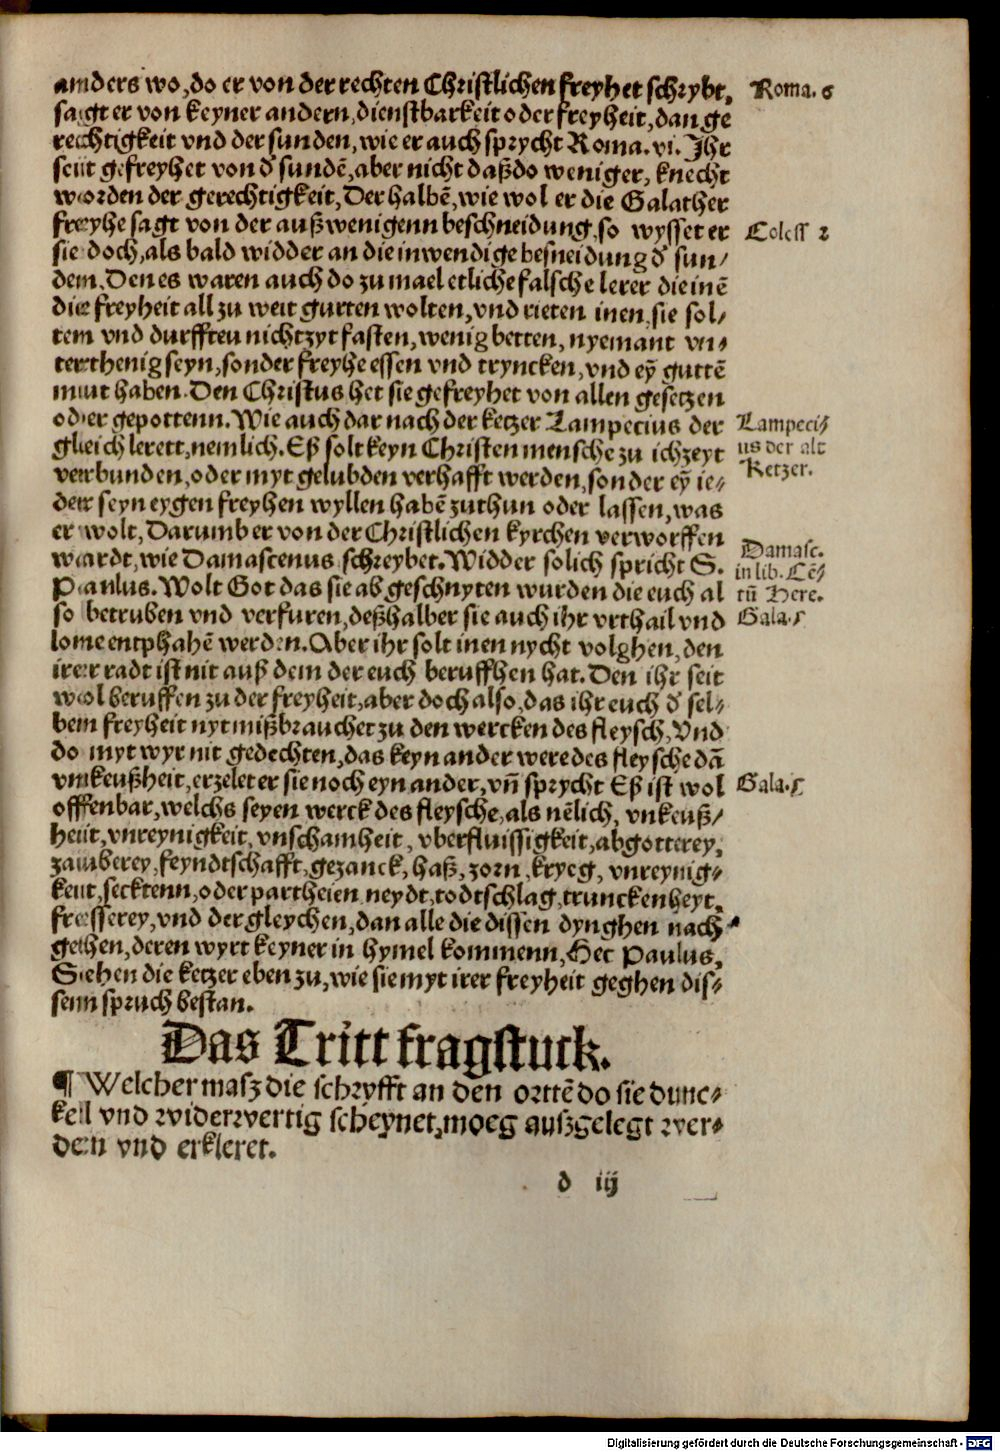 anders wo, do er von der rechten Christlichen freyhet schrybt,
Roma. 6
sagt er von keyner andern, dienstbarkeit oder freyheit, dan ge
rechtigkeit vnd der sunden, wie er auch sprycht Roma. vi. Ihr
seiit gefreyhet von d̕ sundē, aber nicht daß do weniger, knecht
worden der gerechtigkeit, Der halbē, wie wol er die Galather
freyhe sagt von der außwenigenn beschneidung, so wysset er
Coloss 2
sie doch, als bald widder an die inwendige besneidung d̕ sun⸗
dem. Den es waren auch do zu mael etliche falsche lerer die inē
die freyheit all zu weit gurten wolten, vnd rieten inen, sie sol⸗
tem vnd durfften nichtzyt fasten, wenig betten, nyemant vn⸗
terthenig seyn, sonder freyhe essen vnd tryncken, vnd eỹ guttē
muut haben. Den Christus het sie gefreyhet von allen gesetzen
oder gepottenn. Wie auch dar nach der ketzer Lampecius der
Lampeci⸗
us der alt
Ketzer.
gleich lerett, nemlich. Eß solt keyn Christen mensche zu ichzeyt
verbunden, oder myt gelubden verhafft werden, sonder eỹ ie⸗
der seyn eygen freyhen wyllen habē zuthun oder lassen, was
er wolt, Darumb er von der Christlichen kyrchen verworffen
wardt, wie Damascenus schreybet. Widder solich spricht S.
Damasc.
in lib. Cē⸗
tū Here.
Paulus. Wolt Got das sie ab geschnyten wurden die euch al
so betruben vnd verfuren, deßhalber sie auch ihr vrthail vnd
Gala. 5
lome entphahē werden. Aber ihr solt inen nycht volghen, den
irer radt ist nit auß dem der euch beruffhen hat. Den ihr seit
wol beruffen zu der freyheit, aber doch also, das ihr euch d̕ sel⸗
bem freyheit nyt mißbrauchet zu den wercken des fleysch, Vnd
do myt wyr nit gedechten, das keyn ander were des fleysche dā
vnkeußheit, erzelet er sie noch eyn ander, vn̄ sprycht Eß ist wol
Gala. 5
offenbar, welchs seyen werck des fleysche, als nēlich, vnkeuß⸗
heiit, vnreynigkeit, vnschamheit, vberfluissigkeit, abgotterey,
zauberey, feyndtschafft, gezanck, haß, zorn, kryeg, vnreynig⸗
keit, secktenn, oder partheien neydt, todtschlag, trunckenheyt,
fresserey, vnd der gleychen, dan alle die dissen dynghen nach
gehen, deren wyrt keyner in hymel kommenn, Hec Paulus,
Siehen die ketzer eben zu, wie sie myt irer freyheit geghen dis⸗
senn spruch bestan.
Das Tritt fragstuck.
¶ Welcher masz die schryfft an den orttē do sie dunc⸗
kell vnd widerwertig scheynet, moeg auszgelegt wer⸗
den vnd erkleret.
d iij
Digitalisierung gefördert durch die Deutsche Forschungsgemeinschaft - DFG